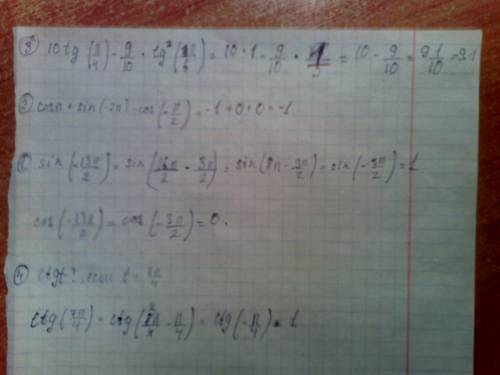 ③ 10 tg (π/4) - 9/10 · tg² (π/6) = 10 · 1 - 9/10 · = 10 - 9/10 = 91/10 = 9.1
② cosπ + sin(-2π) - cos(-π/2) = -1 + 0 + 0 = -1
① sin(-13π/2) = sin(16π/2 - 3π/2) = sin(8π - 3π/2) = sin(-3π/2) = 1
cos(-13π/2) = cos(-3π/2) = 0.
④ ctgt? если t = 7π/4
ctg(7π/4) = ctg( - π/4) = ctg(-π/4) = 1